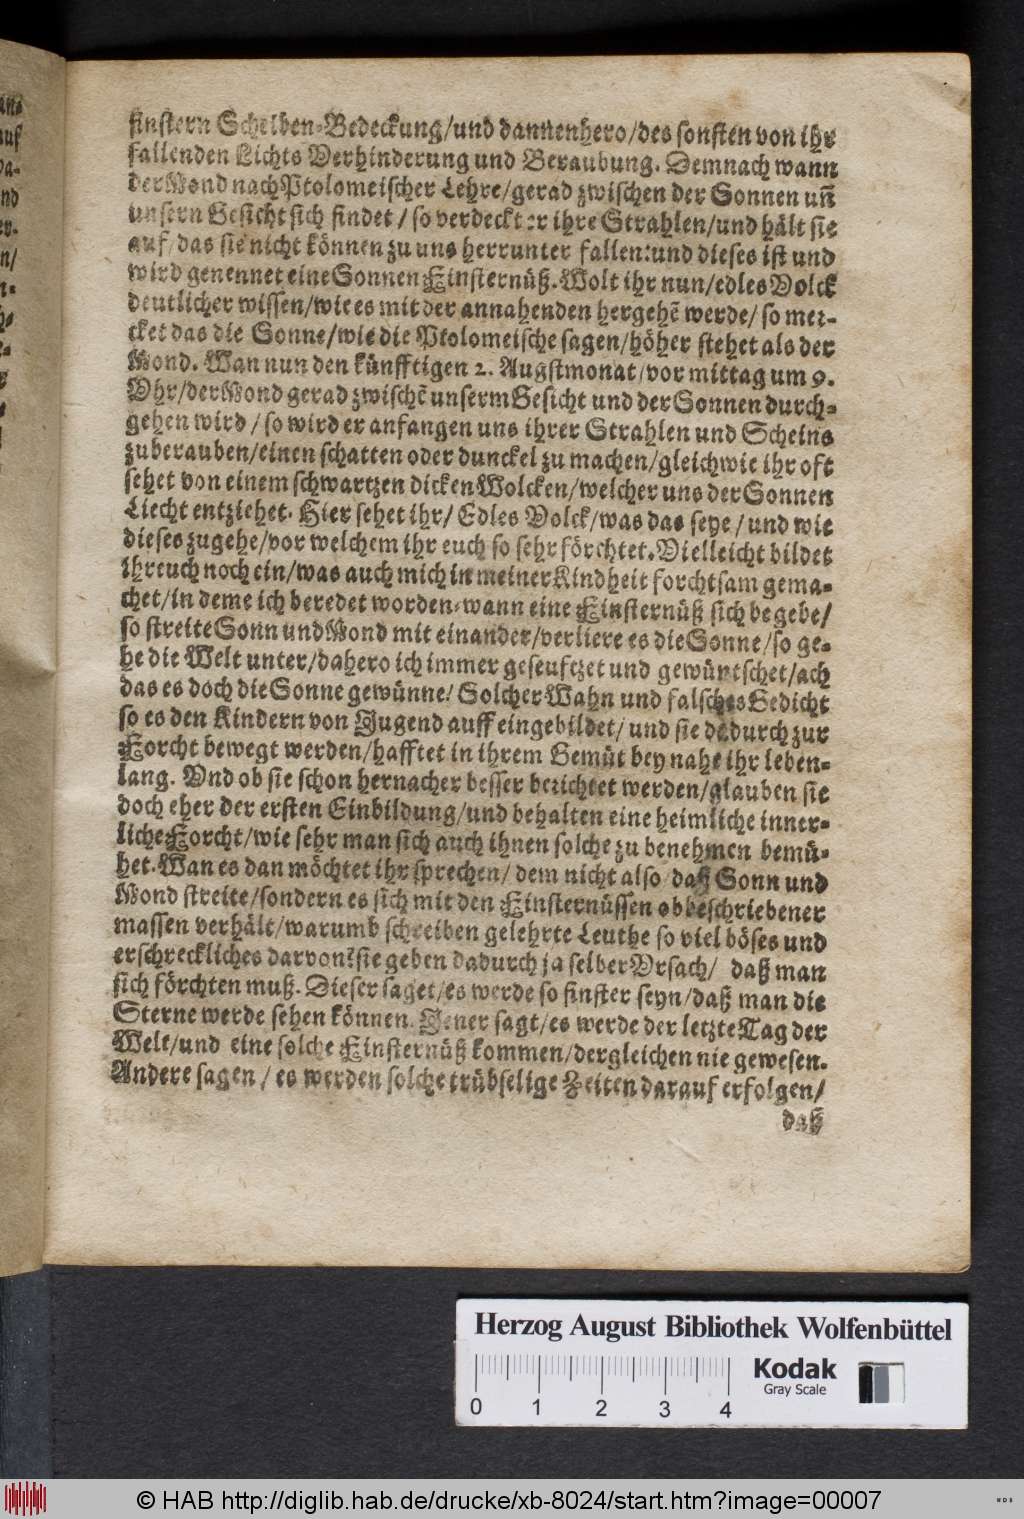 finstern Scheiben-Bedeckung/und dannenhero/des sonsten von ihr
fallenden Lichts Verhinderung und Beraubung. Demnach wann
der Mond nach Ptolomeischer Lehre/gerad zwischen der Sonnen uñ
unsern Gesicht sich findet/so verdeckt er ihre Strahlen/und hält sie
auf/das sie nicht können zu uns herrunter fallen:und dieses ist und
wird genennet eine Sonnen Finsternüß. Wolt ihr nun/edles Volck
deutlicher wissen/wie es mit der annahenden hergehē werde/so mer-
cket das die Sonne/wie die Ptolomeische sagen/höher stehet als der
Mond. Wan nun den künfftigen 2. Augstmonat/vor mittag um 9.
Vhr/der Mond gerad zwischē unserm Gesicht und der Sonnen durch-
gehen wird/so wird er anfangen uns ihrer Strahlen und Scheins
zuberauben/einen schatten oder dunckel zu machen/gleichwie ihr oft
sehet von einem schwartzen dicken Wolcken/welcher uns der Sonnen
Liecht entziehet. Hier sehet ihr/Edles Volck/was das seye/und wie
dieses zugehe/vor welchem ihr euch so sehr förchtet. Vielleicht bildet
ihr euch noch ein/was auch mich in meiner Kindheit forchtsam gema-
chet/in deme ich beredet worden-wann eine Finsternüß sich begebe/
so streite Sonn und Mond mit einander/verliere es die Sonne/so ge-
he die Welt unter/dahero ich immer geseuftzet und gewüntschet/ach
das es doch die Sonne gewünne! Solcher Wahn und falsches Gedicht
so es den Kindern von Jugend auff eingebildet/und sie dadurch zur
Forcht bewegt werden/hafftet in ihrem Gemüt bey nahe ihr leben-
lang. Vnd ob sie schon hernacher besser berichtet werden/glauben sie
doch eher der ersten Einbildung/und behalten eine heimliche inner-
liche Forcht/wie sehr man sich auch ihnen solche zu benehmen bemü-
het. Wan es dan möchtet ihr sprechen/dem nicht also/daß Sonn und
Mond streite/sondern es sich mit den Finsternüssen obbeschriebener
massen verhält/warumb schreiben gelehrte Leuthe so viel böses und
erschreckliches darvon? sie geben dadurch ja selber Vrsach/ daß man
sich förchten muß. Dieser saget/es werde so finster seyn/daß man die
Sterne werde sehen können. Jener sagt/es werde der letzte Tag der
Welt/und eine solche Finsternüß kommen/dergleichen nie gewesen.
Andere sagen/es werden solche trübselige Zeiten darauf erfolgen/
daß
Herzog August Bibliothek Wolfenbüttel
Kodak
Gray Scale
0 1 2 3 4
© HAB http://diglib.hab.de/drucke/xb-8024/start.htm?image=00007